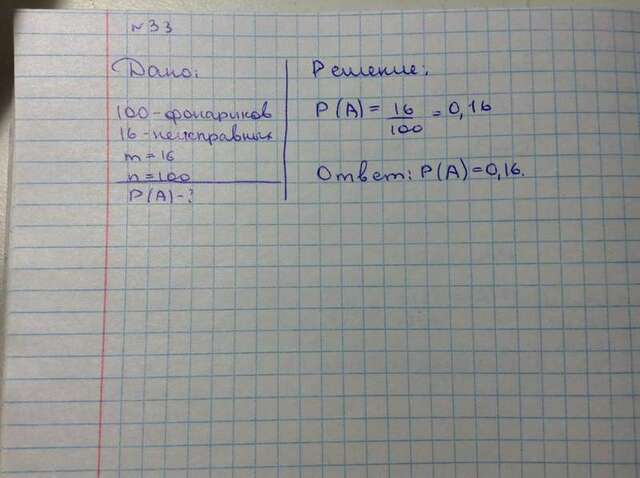 №33
Дано:
100-фонариков
16-неисправных
m=16
n=100
P(A)-?
Решение:
P(A)= 16/100 =0,16
Ответ: P(A)=0,16.